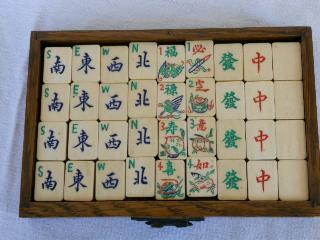 S 南 E 東 W 西 N 北 1 福 1 必 發 中
S 南 E 東 W 西 N 北 2 祿 2 定 發 中
S 南 E 東 W 西 N 北 3 壽 3 意 發 中
S 南 E 東 W 西 N 北 4 喜 4 如 發 中